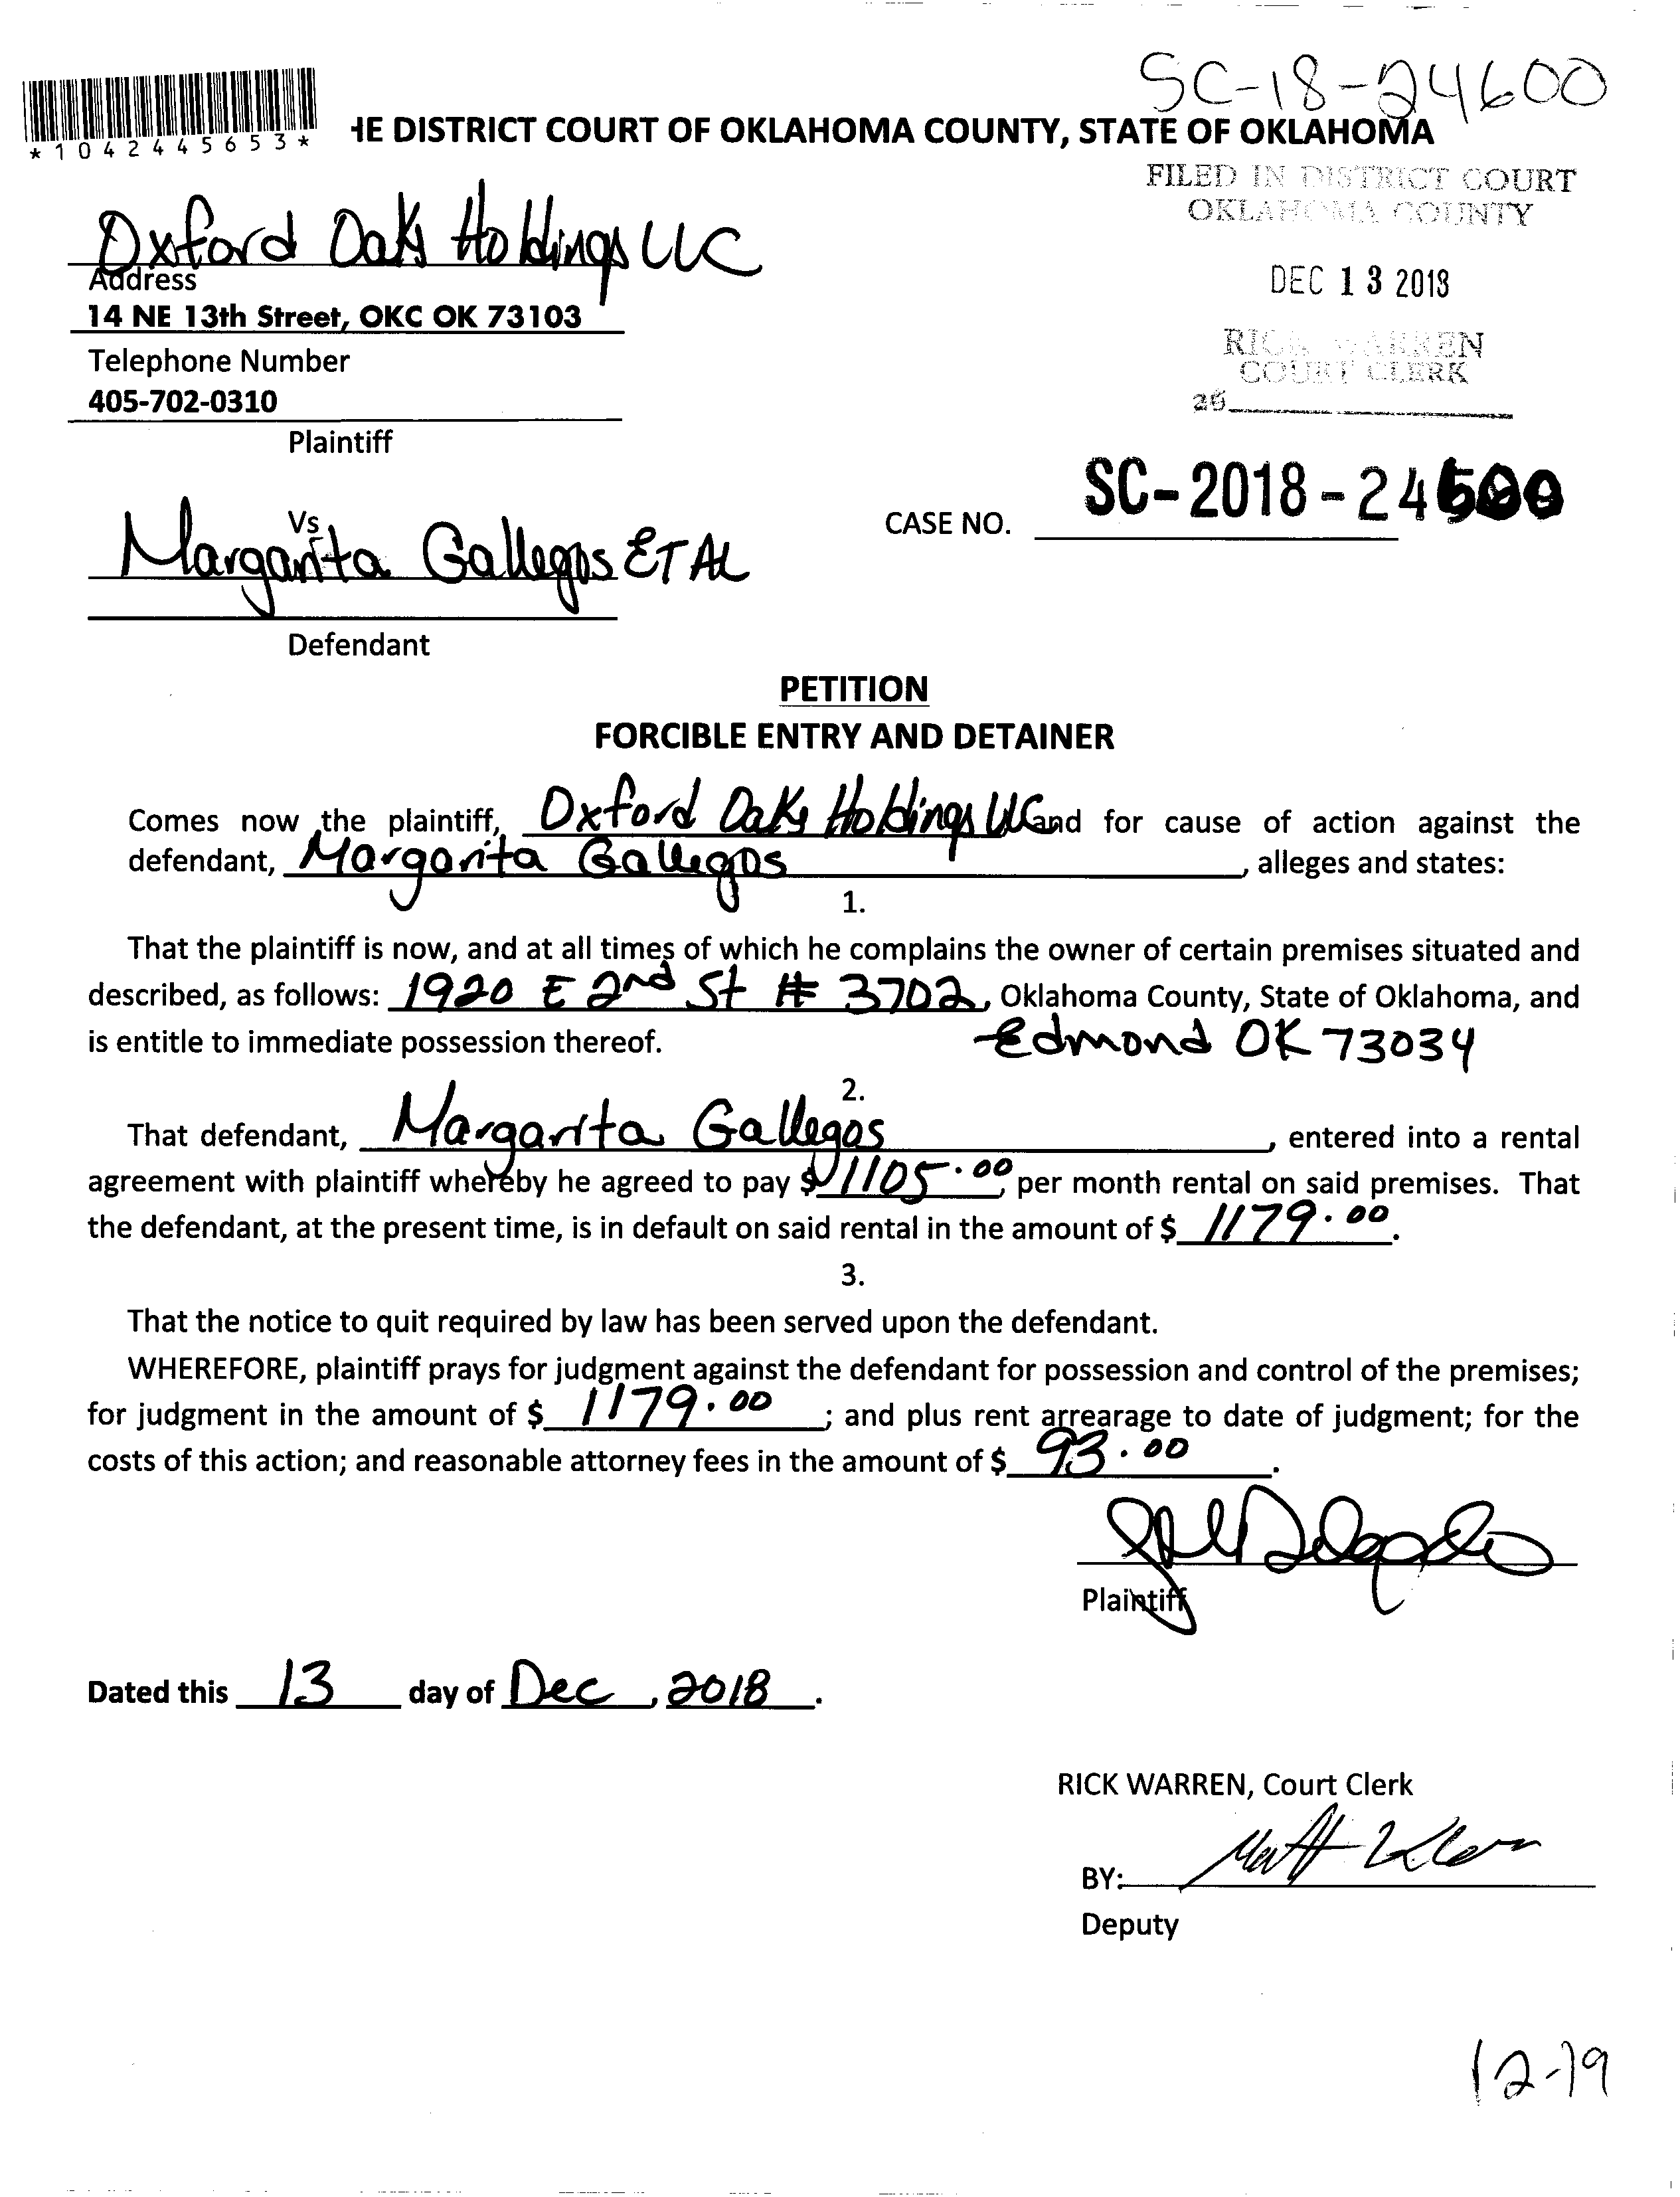 SC-18-24600
*1042445653*
HE DISTRICT COURT OF OKLAHOMA COUNTY, STATE OF OKLAHOMA
FILED IN DISTRICT COURT
OKLAHOMA COUNTY
Oxford Oaks Holdings LLC
Address
DEC 13 2018
14 NE 13th Street, OKC OK 73103
RICK WARREN
COURT CLERK
Telephone Number
405-702-0310
Plaintiff
SC-2018-24600
Vs
CASE NO.
Margarita Gallegos ET AL
Defendant
PETITION
FORCIBLE ENTRY AND DETAINER
Comes now the plaintiff, Oxford Oaks Holdings LLC and for cause of action against the
defendant, Margarita Gallegos, alleges and states:
1.
That the plaintiff is now, and at all times of which he complains the owner of certain premises situated and
described, as follows: 1920 E 2nd St # 3702, Oklahoma County, State of Oklahoma, and
is entitle to immediate possession thereof. Edmond OK 73034
2.
That defendant, Margarita Gallegos, entered into a rental
agreement with plaintiff whereby he agreed to pay $ 1105.00, per month rental on said premises. That
the defendant, at the present time, is in default on said rental in the amount of $ 1179.00.
3.
That the notice to quit required by law has been served upon the defendant.
WHEREFORE, plaintiff prays for judgment against the defendant for possession and control of the premises;
for judgment in the amount of $ 1179.00; and plus rent arrearage to date of judgment; for the
costs of this action; and reasonable attorney fees in the amount of $ 93.00.
Plaintiff
Dated this 13 day of Dec, 2018.
RICK WARREN, Court Clerk
BY:
Deputy
12-19